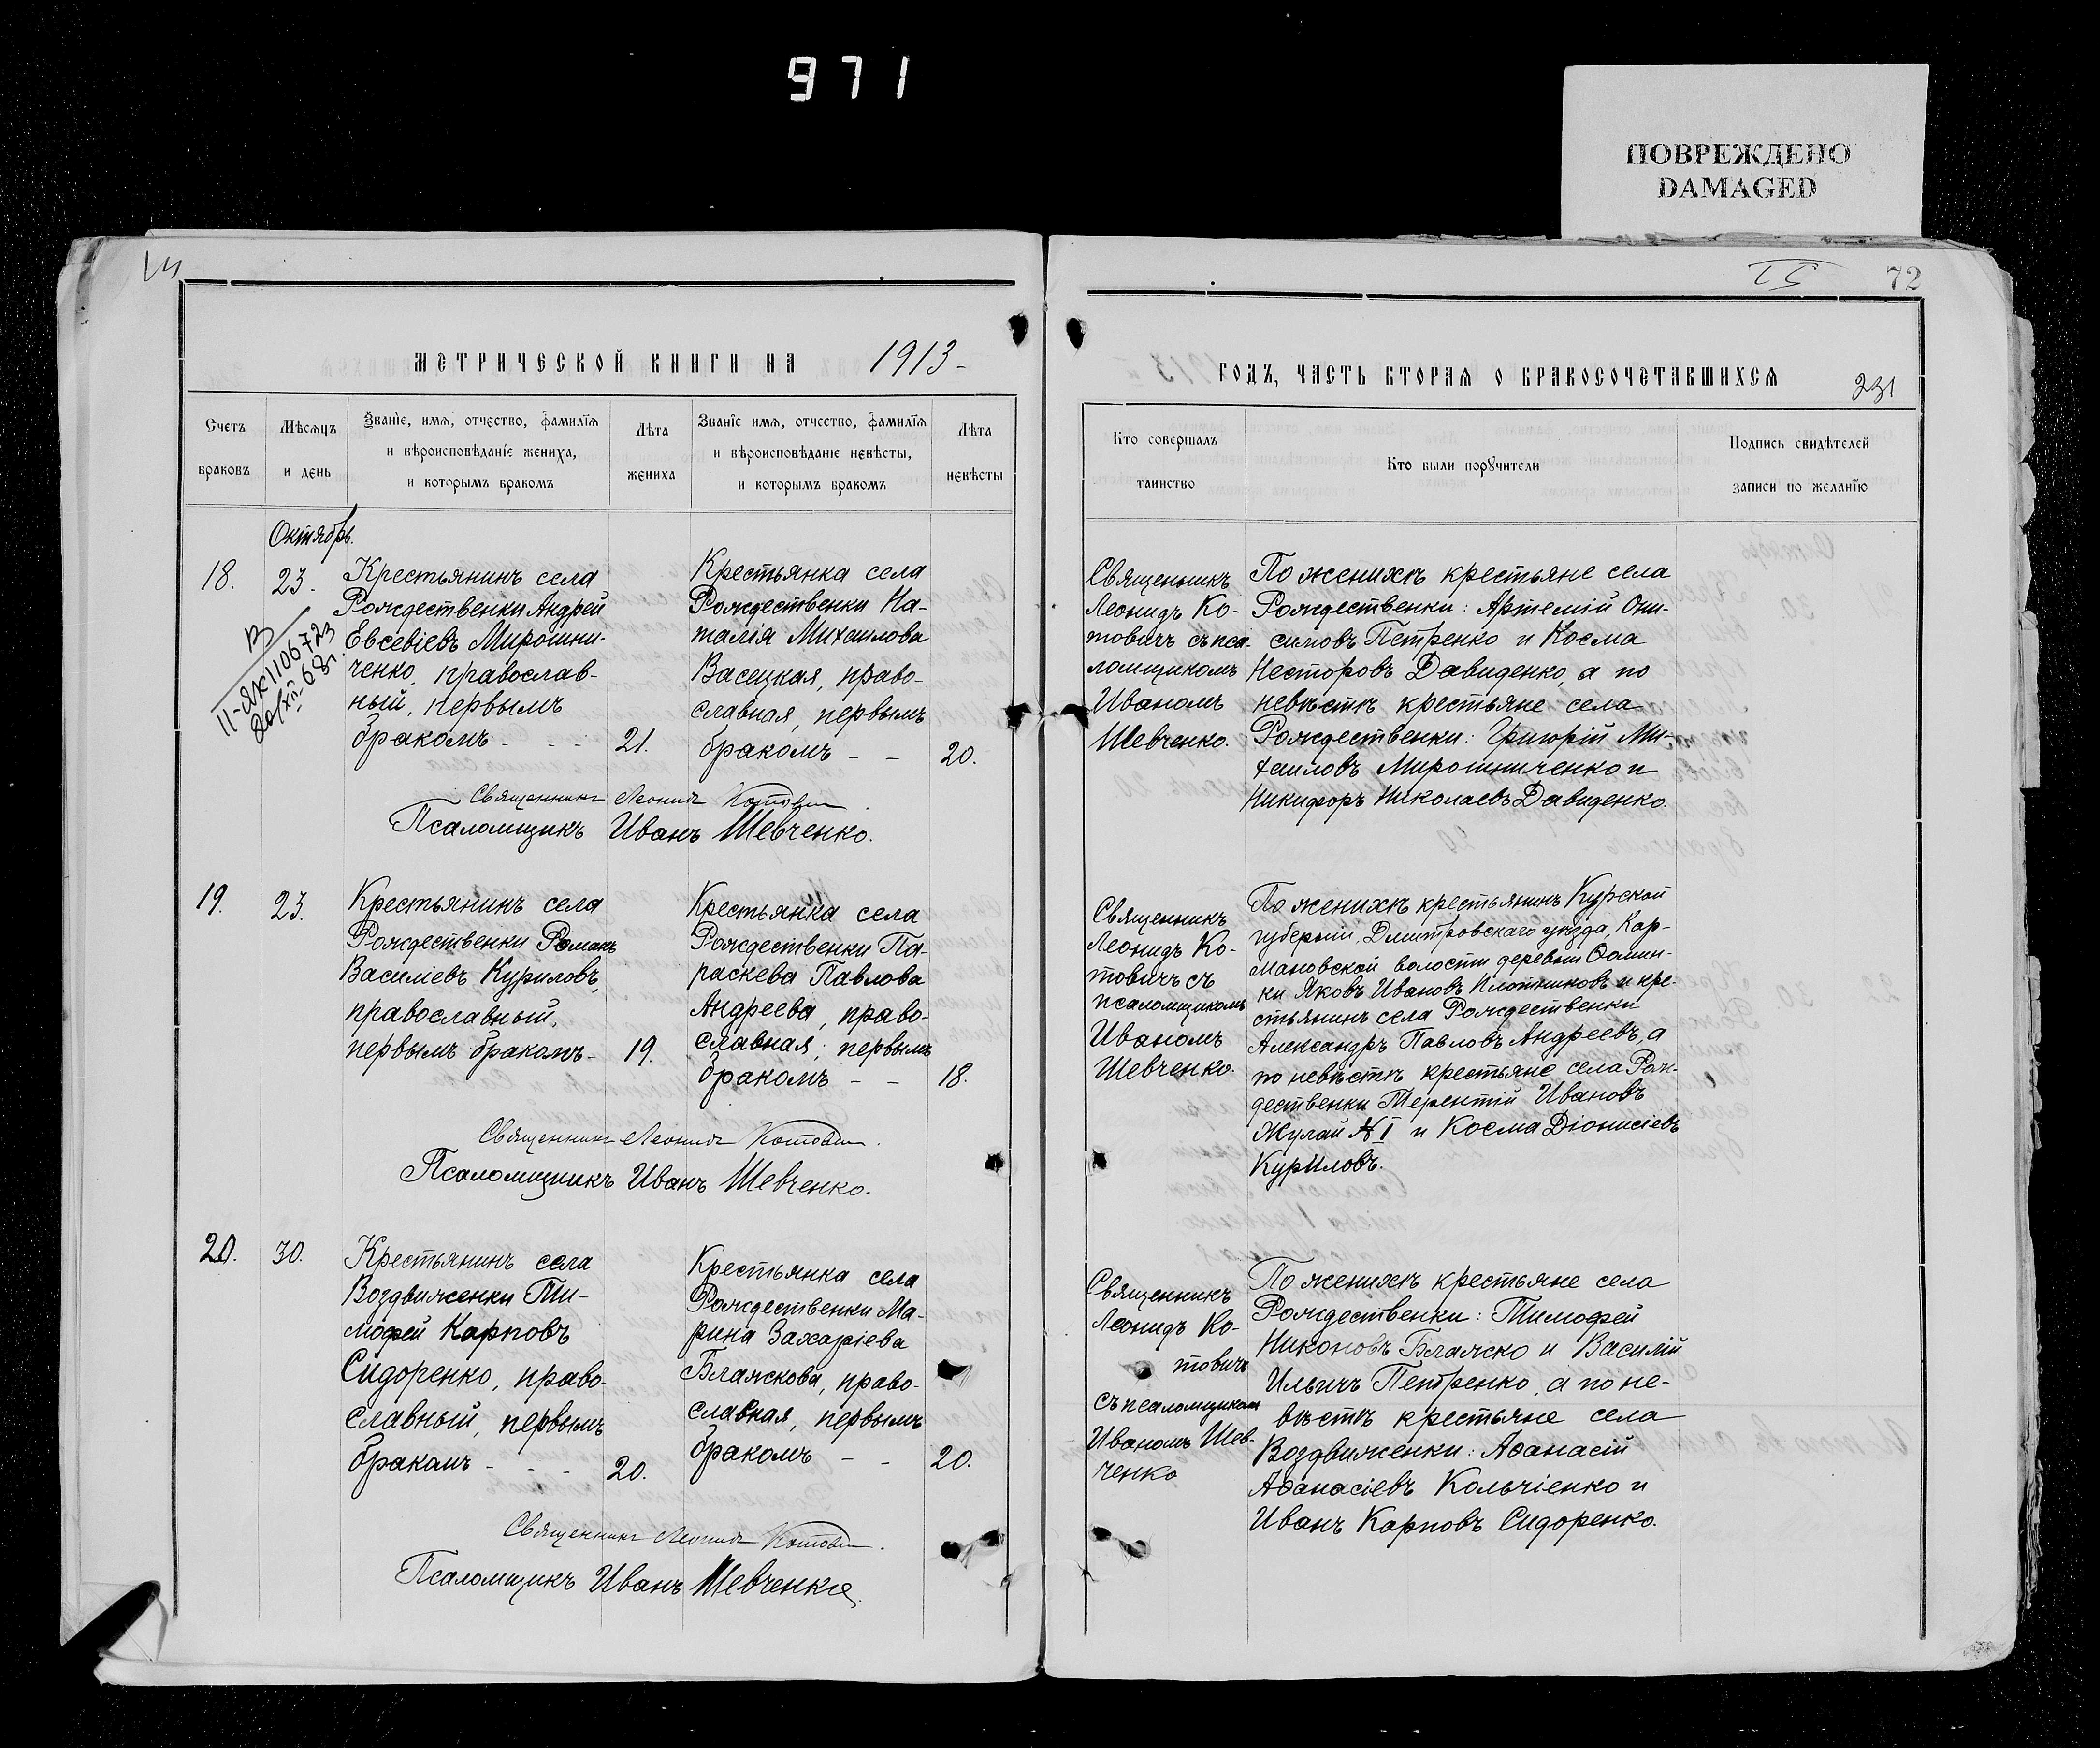 971
ПОВРЕЖДЕНО
DAMAGED
72
МЕТРИЧЕСКОЙ КНИГИ НА 1913
Счетъ браковъ
Мѣсяцъ и день
Званіе, имя, отчество, фамилія
и вѣроисповѣданіе жениха,
и которымъ бракомъ
Лѣта жениха
Званїе имя, отчество, фамилїя
и вѣроисповѣданіе невѣсты,
и которымъ бракомъ
Лѣта невѣсты
Октябрь.
18.
23.
Крестьянинъ села
Рождественки Андрей
Евсевіевъ Мирошни-
ченко, православ-
ный, первымъ
бракомъ - - -
21.
Крестьянка села
Рождественки На-
талія Михаилова
Васецкая, право-
славная, первымъ
бракомъ - -
20.
II-ЯК 1106723
Священникъ Леонидъ Котович
Псаломщикъ Иванъ Шевченко.
19.
23.
Крестьянинъ села
Рождественки Романъ
Василіевъ Куриловъ,
православный,
первымъ бракомъ-
19.
Крестьянка села
Рождественки Па-
раскева Павлова
Андреева, право-
славная, первымъ
бракомъ - -
18.
Священникъ Леонидъ Котович.
Псаломщикъ Иванъ Шевченко.
20.
30.
Крестьянинъ села
Воздвиженки Ти-
мофей Карповъ
Сидоренко, право-
славный, первымъ
бракомъ - - -
20.
Крестьянка села
Рождественки Ма-
рина Захаріева
Блажскова, право-
славная, первымъ
бракомъ - -
20.
Священникъ Леонидъ Котович.
Псаломщикъ Иванъ Шевченко.
ГОДЪ, ЧАСТЬ ВТОРАЯ О БРАКОСОЧЕТАВШИХСЯ
231
Кто совершалъ
таинство
Кто были порꙋчители
Подпись свидѣтелей
записи по желанїю
Священникъ
Леонидъ Ко-
товичъ съ пса-
ломщикомъ
Иваномъ
Шевченко.
По женихѣ крестьяне села
Рождественки: Артемій Они-
симовъ Петренко и Косма
Несторовъ Давиденко, а по
невѣстѣ крестьяне села
Рождественки: Григорій Ми-
хаиловъ Мирошниченко и
Никифоръ Николаевъ Давиденко.
Священникъ
Леонидъ Ко-
товичъ съ
псаломщикомъ
Иваномъ
Шевченко.
По женихѣ крестьянинъ Курской
губерніи, Дмитровскаго уѣзда, Кар-
мановской волости деревни Ѳомин-
ки Яковъ Ивановъ Плотниковъ и кре-
стьянинъ села Рождественки
Александръ Павловъ Андреевъ, а
по невѣстѣ крестьяне села Рож-
дественки Терентій Ивановъ
Жулай № I и Косма Діонисіевъ
Куриловъ.
Священникъ
Леонидъ Ко-
товичъ
съ псаломщикомъ
Иваномъ Шев-
ченко
По женихѣ крестьяне села
Рождественки: Тимофей
Никоновъ Блажско и Василій
Ильичъ Петренко, а по не-
вѣстѣ крестьяне села
Воздвиженки: Аѳанасій
Аѳанасіевъ Кольчіенко и
Иванъ Карповъ Сидоренко.